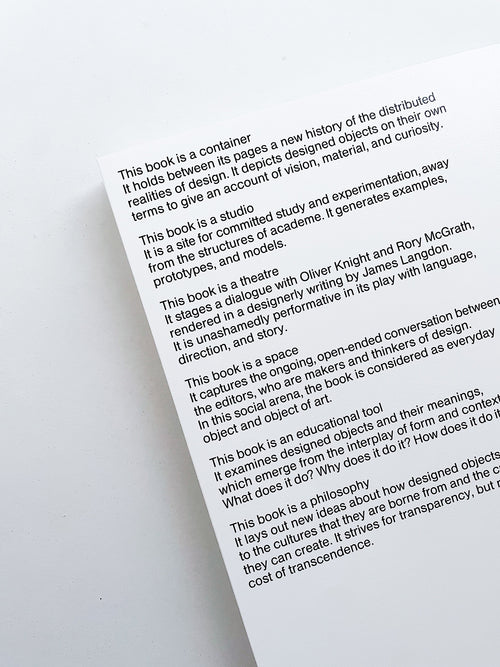 This book is a container
It holds between its pages a new history of the distributed
realities of design. It depicts designed objects on their own
terms to give an account of vision, material, and curiosity.
This book is a studio
It is a site for committed study and experimentation, away
from the structures of academe. It generates examples,
prototypes, and models.
This book is a theatre
It stages a dialogue with Oliver Knight and Rory McGrath,
rendered in a designerly writing by James Langdon.
It is unashamedly performative in its play with language,
direction, and story.
This book is a space
It captures the ongoing, open-ended conversation between
the editors, who are makers and thinkers of design.
In this social arena, the book is considered as everyday
object and object of art.
This book is an educational tool
It examines designed objects and their meanings,
which emerge from the interplay of form and context
What does it do? Why does it do it? How does it do it
This book is a philosophy
It lays out new ideas about how designed objects
to the cultures that they are borne from and the
they can create. It strives for transparency, but
cost of transcendence.